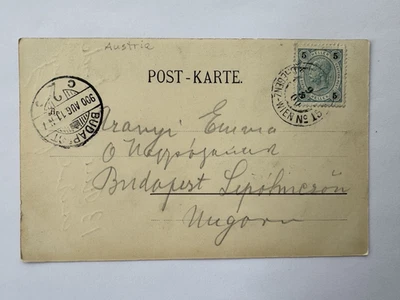 Austria
POST-KARTE.
5 5
BUDAPEST
900 AUG.
C
WIEN No
Aranyi Emma
O Nagyságának
Budapest Lipótmezőn
Ungarn